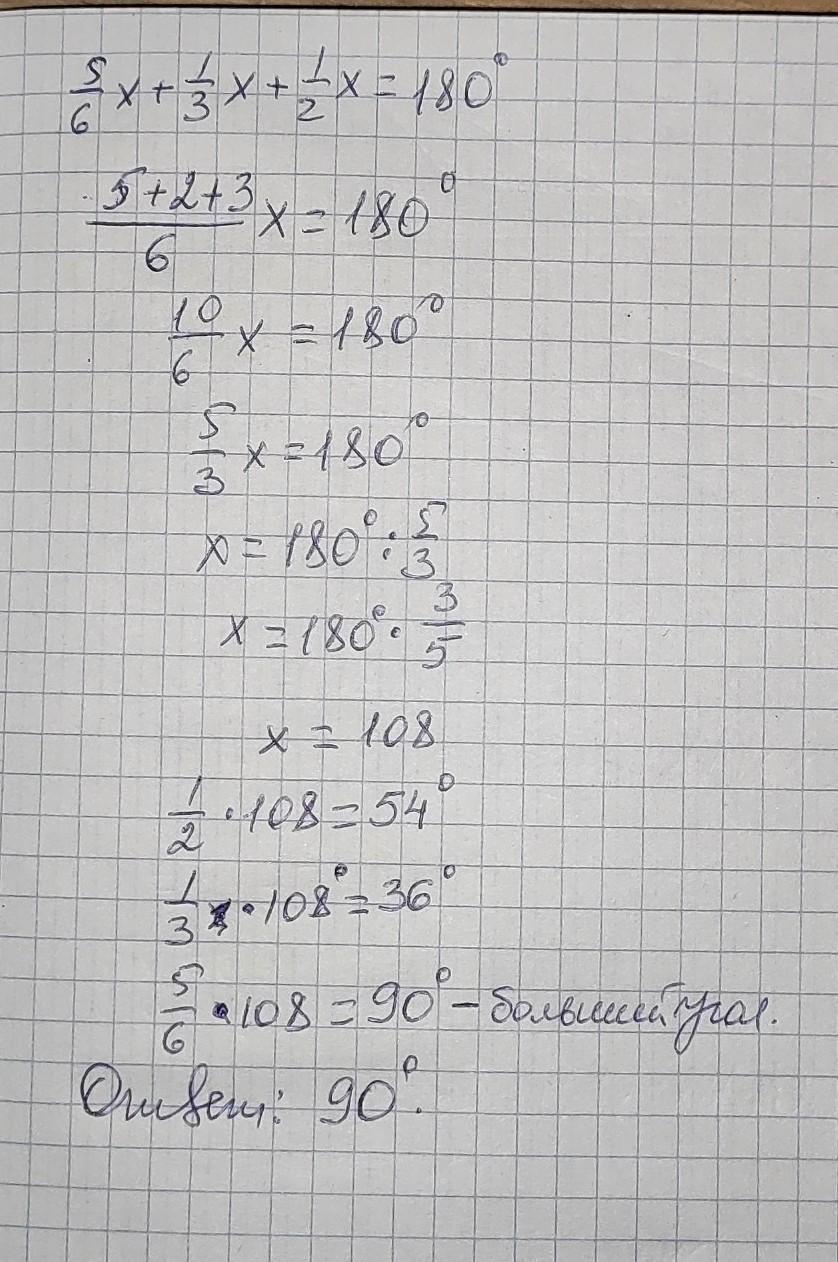 5/6 x + 1/3 x + 1/2 x = 180°
(5+2+3)/6 x = 180°
10/6 x = 180°
5/3 x = 180°
x = 180° : 5/3
x = 180° · 3/5
x = 108
1/2 · 108 = 54°
1/3 · 108° = 36°
5/6 · 108 = 90° – больший угол.
Ответ: 90°.